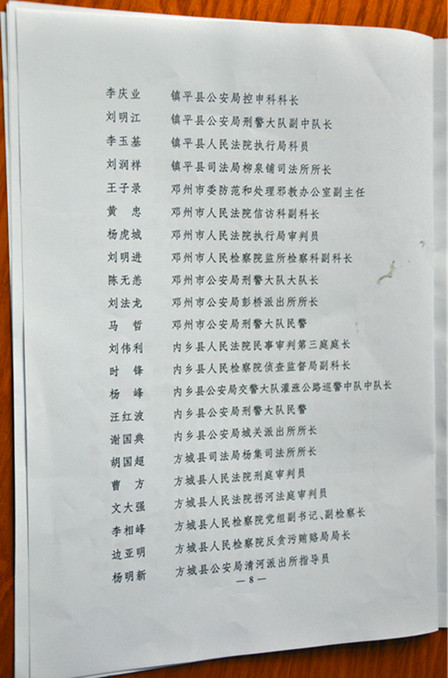 李庆业 镇平县公安局控申科科长
刘明江 镇平县公安局刑警大队副中队长
李玉基 镇平县人民法院执行局科员
刘润祥 镇平县司法局柳泉铺司法所所长
王子录 邓州市委防范和处理邪教办公室副主任
黄忠 邓州市人民法院信访科副科长
杨虎城 邓州市人民法院执行局审判员
刘明进 邓州市人民检察院监所检察科副科长
陈无恙 邓州市公安局刑警大队大队长
刘法龙 邓州市公安局彭桥派出所所长
马哲 邓州市公安局刑警大队民警
刘伟利 内乡县人民法院民事审判第三庭庭长
时锋 内乡县人民检察院侦查监督局副科长
杨峰 内乡县公安局交警大队灌涨公路巡警中队中队长
汪红波 内乡县公安局刑警大队民警
谢国典 内乡县公安局城关派出所所长
胡国超 方城县司法局杨集司法所所长
曹方 方城县人民法院刑庭审判员
文大强 方城县人民法院拐河法庭审判员
李相峰 方城县人民检察院党组副书记、副检察长
边亚明 方城县人民检察院反贪污贿赂局局长
杨明新 方城县公安局清河派出所指导员
— 8 —